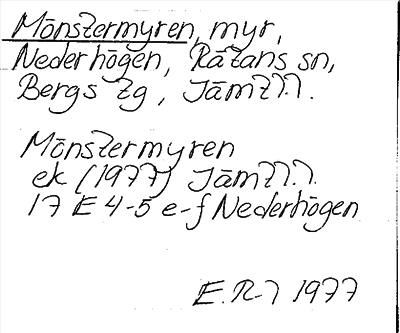 Mönstermyren, myr,
Nederhögen, Rätans sn,
Bergs tg, Jämtl.
Mönstermyren
ek (1977) Jämtl.
17 E 4-5 e-f Nederhögen
1977